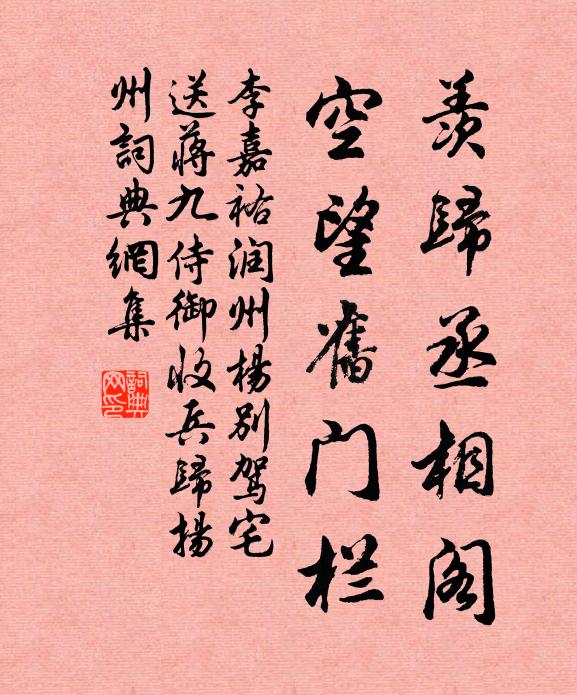 羡歸丞相阁
空望舊门栏
李嘉祐润州楊别駕宅
送蔣九侍御收兵歸揚
州詞典網集
詞典
网印